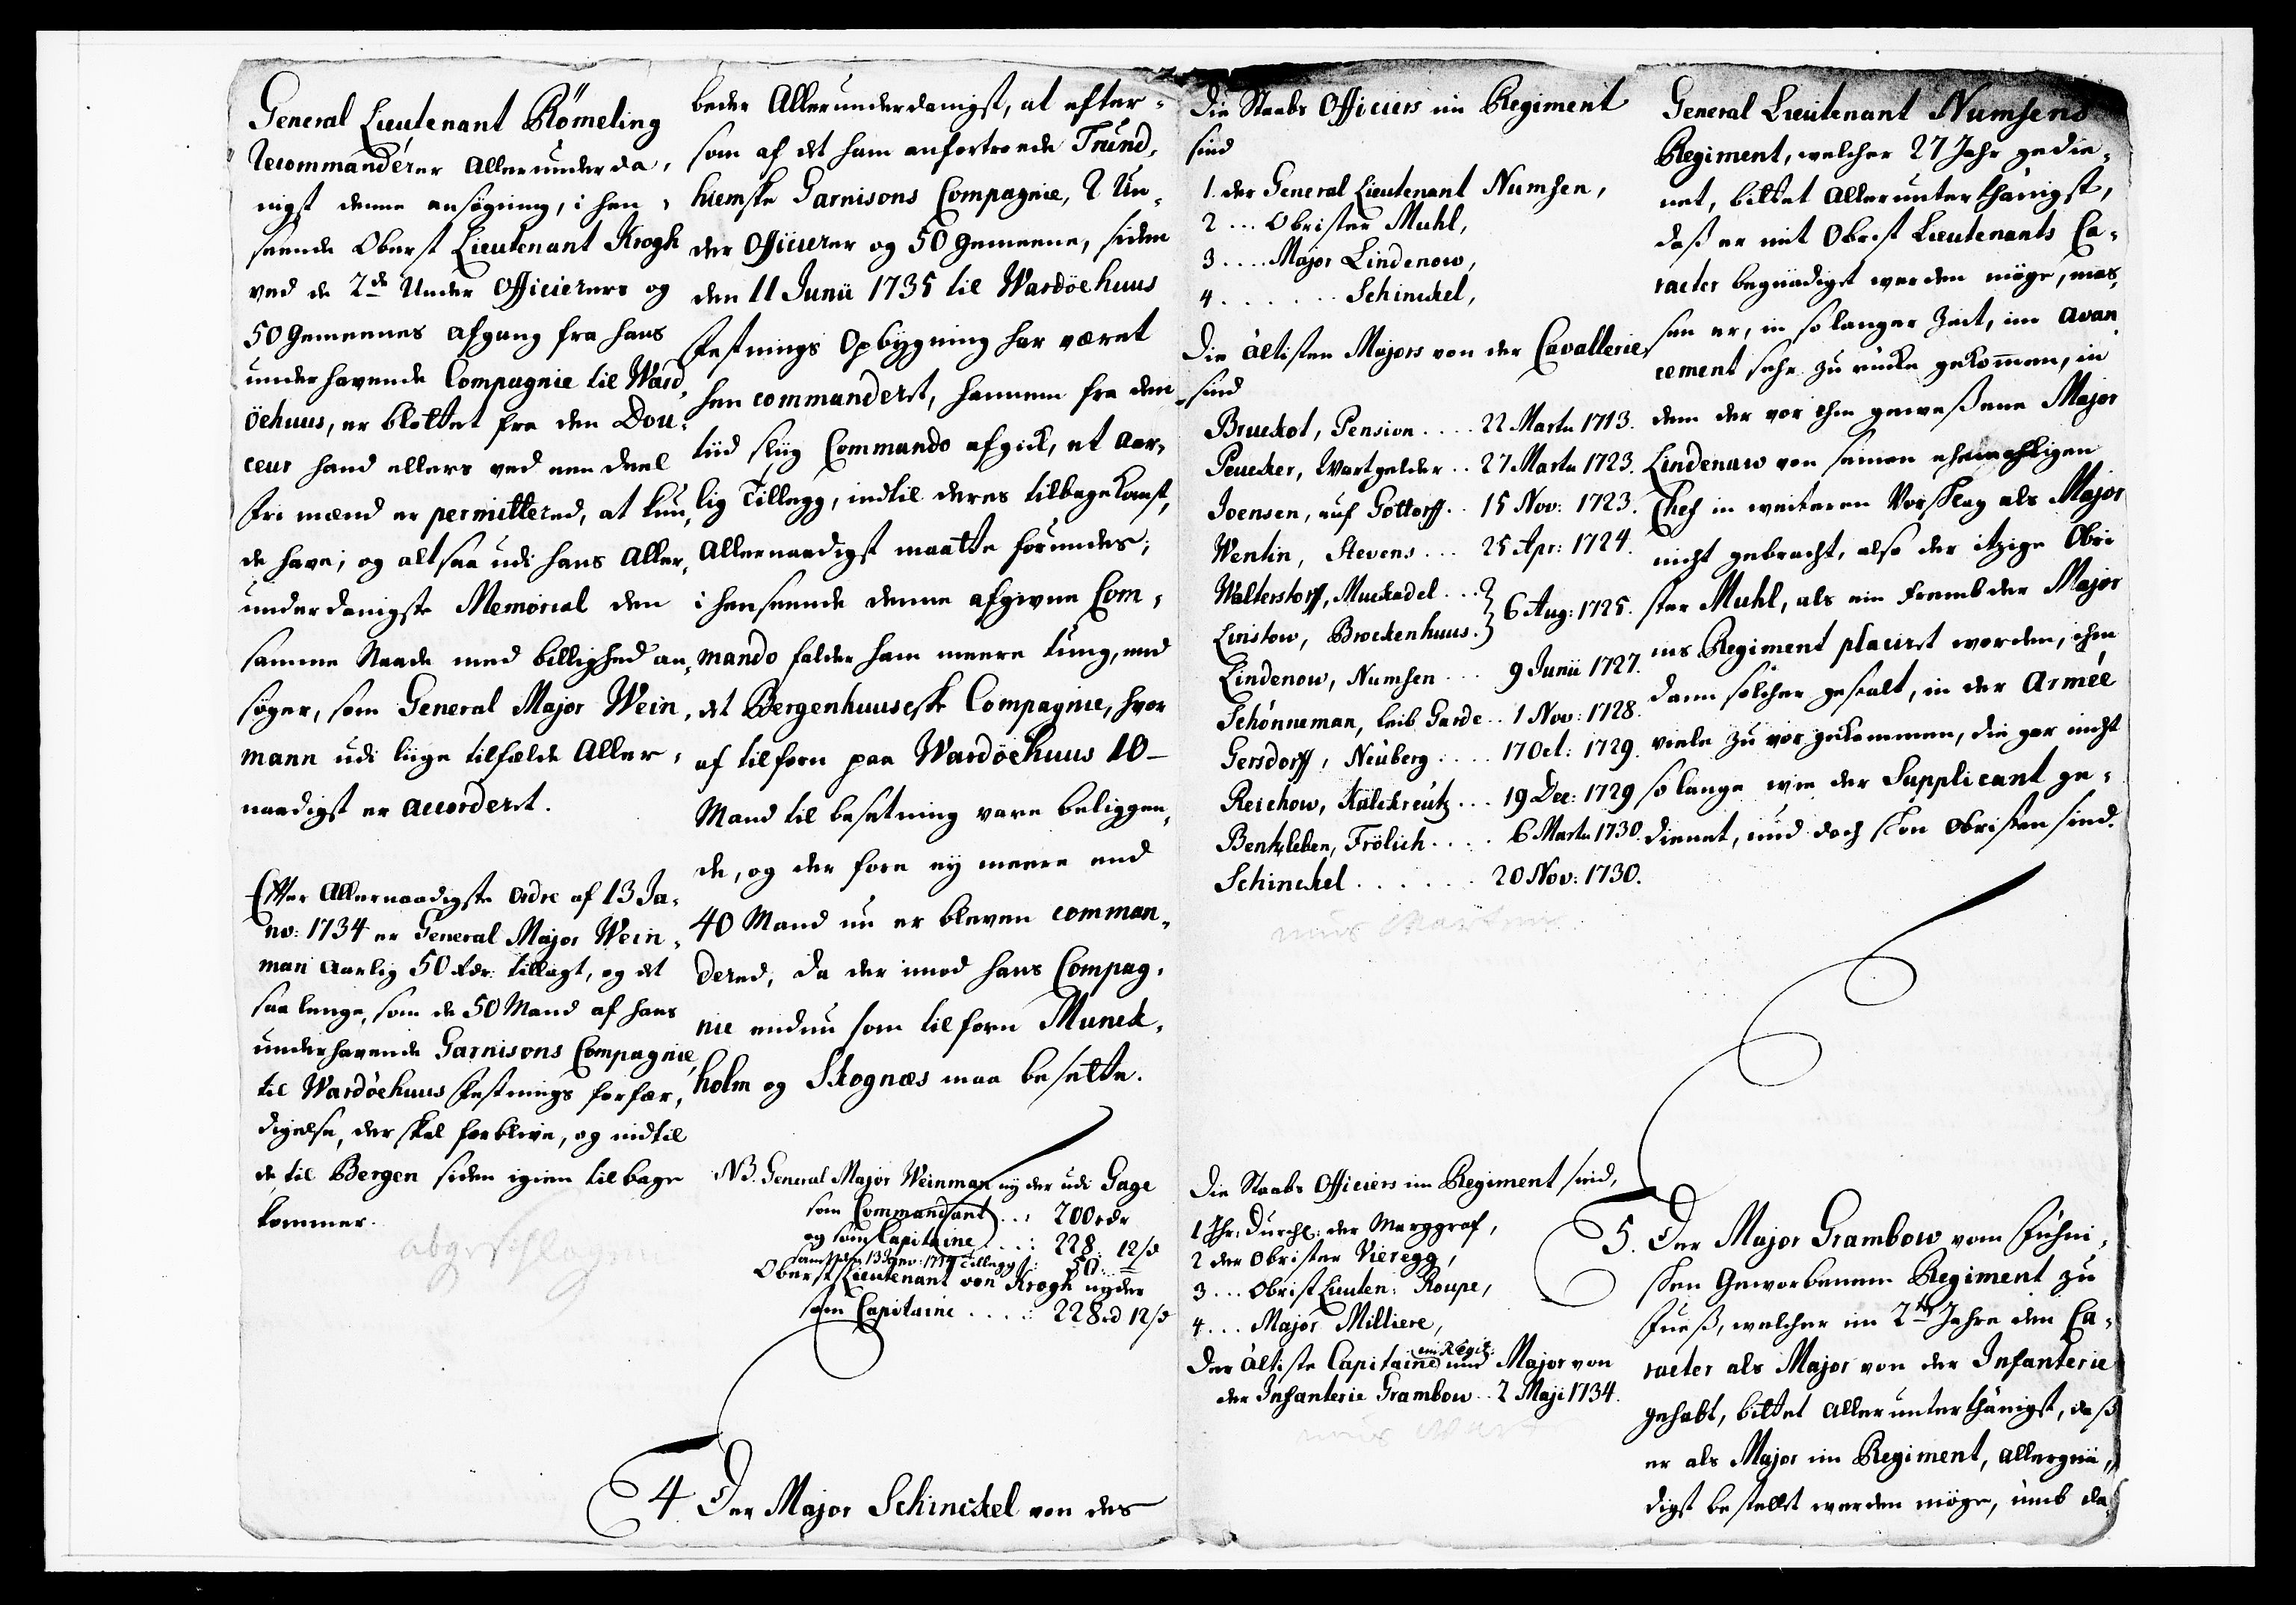 General Lieutenant Römeling
recommanderer Allerunderda,
nigst denne ansögning, i hen,
seende Oberst Lieutenant Krogh
ved de 2de Under Officierers og
50 Gemeenes afgang fra hans
underhavende Compagnie til Ward,
öehuus, er blottet fra den Dou,
ceur hand ellers ved een deel
fri mænd er permittered, at kun,
de have; og altsaa udi hans Aller,
underdanigste Memorial den
samme Naade med billighed an,
söger, som General Major Wein,
mann udi liige tilfælde Aller,
naadigst er accorderet.
Efter Allernaadigste Ordre af 13 Ja,
nv: 1734 er General Major Wein,
man Aarlig 50 rdr: tillagt, og det
saa lenge, som de 50 Mand af hans
underhavende Garnisons Compagnie,
til Wardöehuus Festnings forfær,
digelse, der skal forblive, og indtil
de til Bergen siden igien tilbage
kommer.
abgeschlagen
beder Allerunderdanigst, at efter,
som af det ham anfortroede Trund,
hiemske Garnisons Compagnie, 2 Un,
der Officierer og 50 Gemeene, siden
den 11 Junii 1735 til Wardöehuus
Festnings Opbygning har været
hen commanderet, hannem fra den
tiid sliig Commando afgick, et Aar,
lig Tillegg, indtil deres tilbagekomst,
Allernaadigst maatte forundes;
i henseende denne afgivne Com,
mando falder ham meere tung, end
det Bergenhuuseske Compagnie, hvor
af tilforn paa Wardöehuus 10
Mand til besetning vare beliggen,
de, og der fore ey meere end
40 Mand nu er bleven comman,
dered, da der imod hans Compag,
nie endnu som tilforn Munck,
holm og Skognæs maa besette.
NB. General Major Weinman nyder udi Gage
som Commandant ... 200 rdr
og som Capitaine ... 228: 12 s
samt den 13 Janv: 1734 Tillegg: 50:
Oberst Lieutenant von Krogh nyder
som Capitaine .... 228 rd 12 s
4 Der Major Schinckel von des
Die Staabs Officiers im Regiment
sind
1. der General Lieutenant Numsen,
2 ... Obrister Muhl,
3 .... Major Lindenow,
4 ...... Schinckel,
Die ältisten Majors von der Cavallerie
sind
Bruckot, Pension .... 22 Martii 1713.
Peucker, Wartgelder .. 27 Martii 1723.
Joensen, auf Gottorff .. 15 Nov: 1723.
Wentin, Stevens ... 25 Apr: 1724.
Walterstorff, Muckadel ...
Linstow, Brockenhuus. } 6 Aug: 1725.
Lindenow, Numsen ... 9 Junii 1727.
Schönneman, Leib Garde .. 1 Nov: 1728.
Gersdorff, Neuberg .... 17 Oct: 1729.
Reichow, Kalckreutz ... 19 Dec: 1729
Bentzleben, Frölich .... 6 Martii 1730.
Schinckel ...... 20 Nov: 1730.
Die Staabs Officiers im Regiment sind,
1 Ihr: Durchl: der Marggraf,
2 der Obrister Vieregg,
3 ... Obrist Lieuten: Roupe,
4 ... Major Milliere,
Der ältiste Capitaine im Regit: und Major von
der Infanterie Grambow .. 2 Maji 1734.
General Lieutenant Numsens
Regiment, welcher 27 Jahr gedie,
net, bittet Allerunterthänigst,
daß er mit Obrist Lieutenants Ca,
racter begnädiget werden möge, mas,
sen er, in so langer Zeit, im Avan
cement sehr zu rücke gekommen, in
dem der vor ihm geweßene Major
Lindenaw von seinem ehemahligen
Chef in weiteren Vorschlag als Major
nicht gebracht, also der itzige Obri
ster Muhl, als ein frembder Major
ins Regiment placirt worden, ihm
dann solcher gestalt, in der Armée
viele zu vor gekommen, die gar nicht
so lange wie der Supplicant ge,
dienet, und doch schon Obristen sind.
5. Der Major Grambow vom Fühni,
schen Geworbenem Regiment zu
Fueß, welcher im 2ten Jahre den Ca,
racter als Major von der Infanterie
gehabt, bittet Allerunterthänigst, daß
er als Major im Regiment, allergnä,
digst bestellet werden möge, umb da